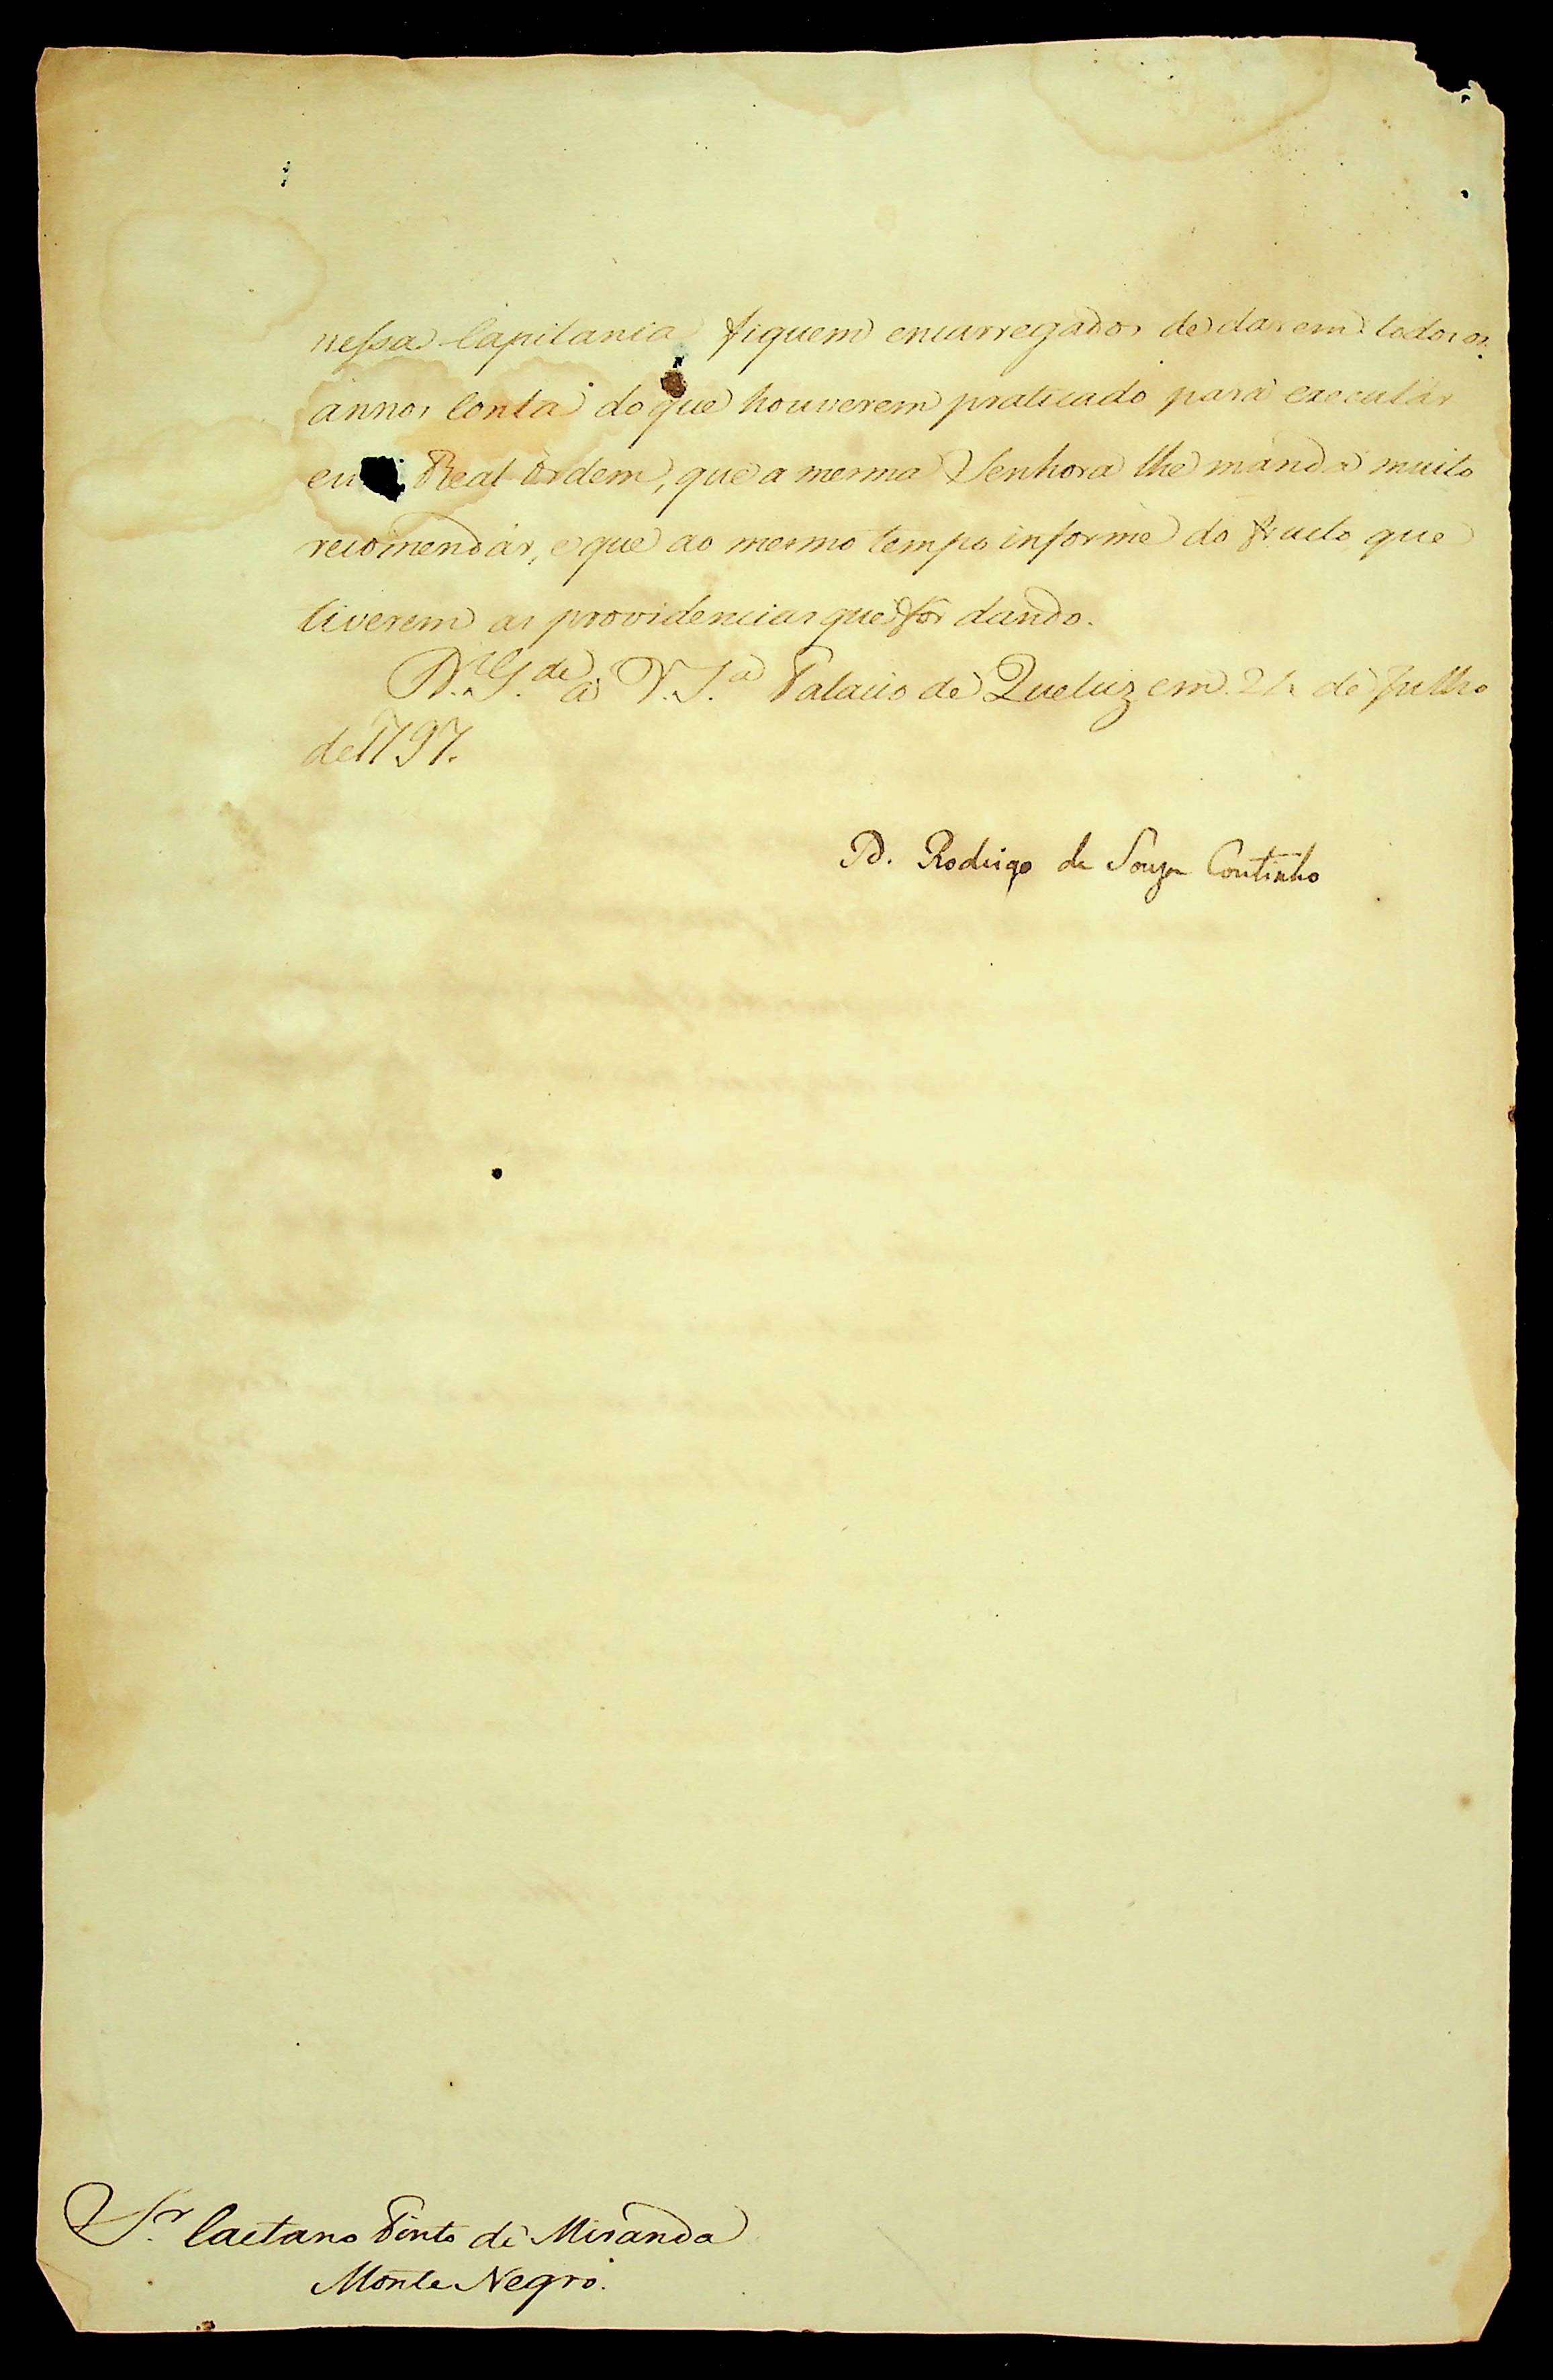 nessa Capitania fiquem encarregados de darem todos os
annos conta do que houverem praticado para executar
Real ordem, que a mesma Senhora lhe manda muito
recomendar, e que ao mesmo tempo informe do fructo que
tiverem as providencias que for dando.
D.s G.de a V. S.a Palacio de Queluz em de Julho
de 1797.
D. Rodrigo de Souza Coutinho
S.r Caetano Pinto de Miranda
Monte Negro.